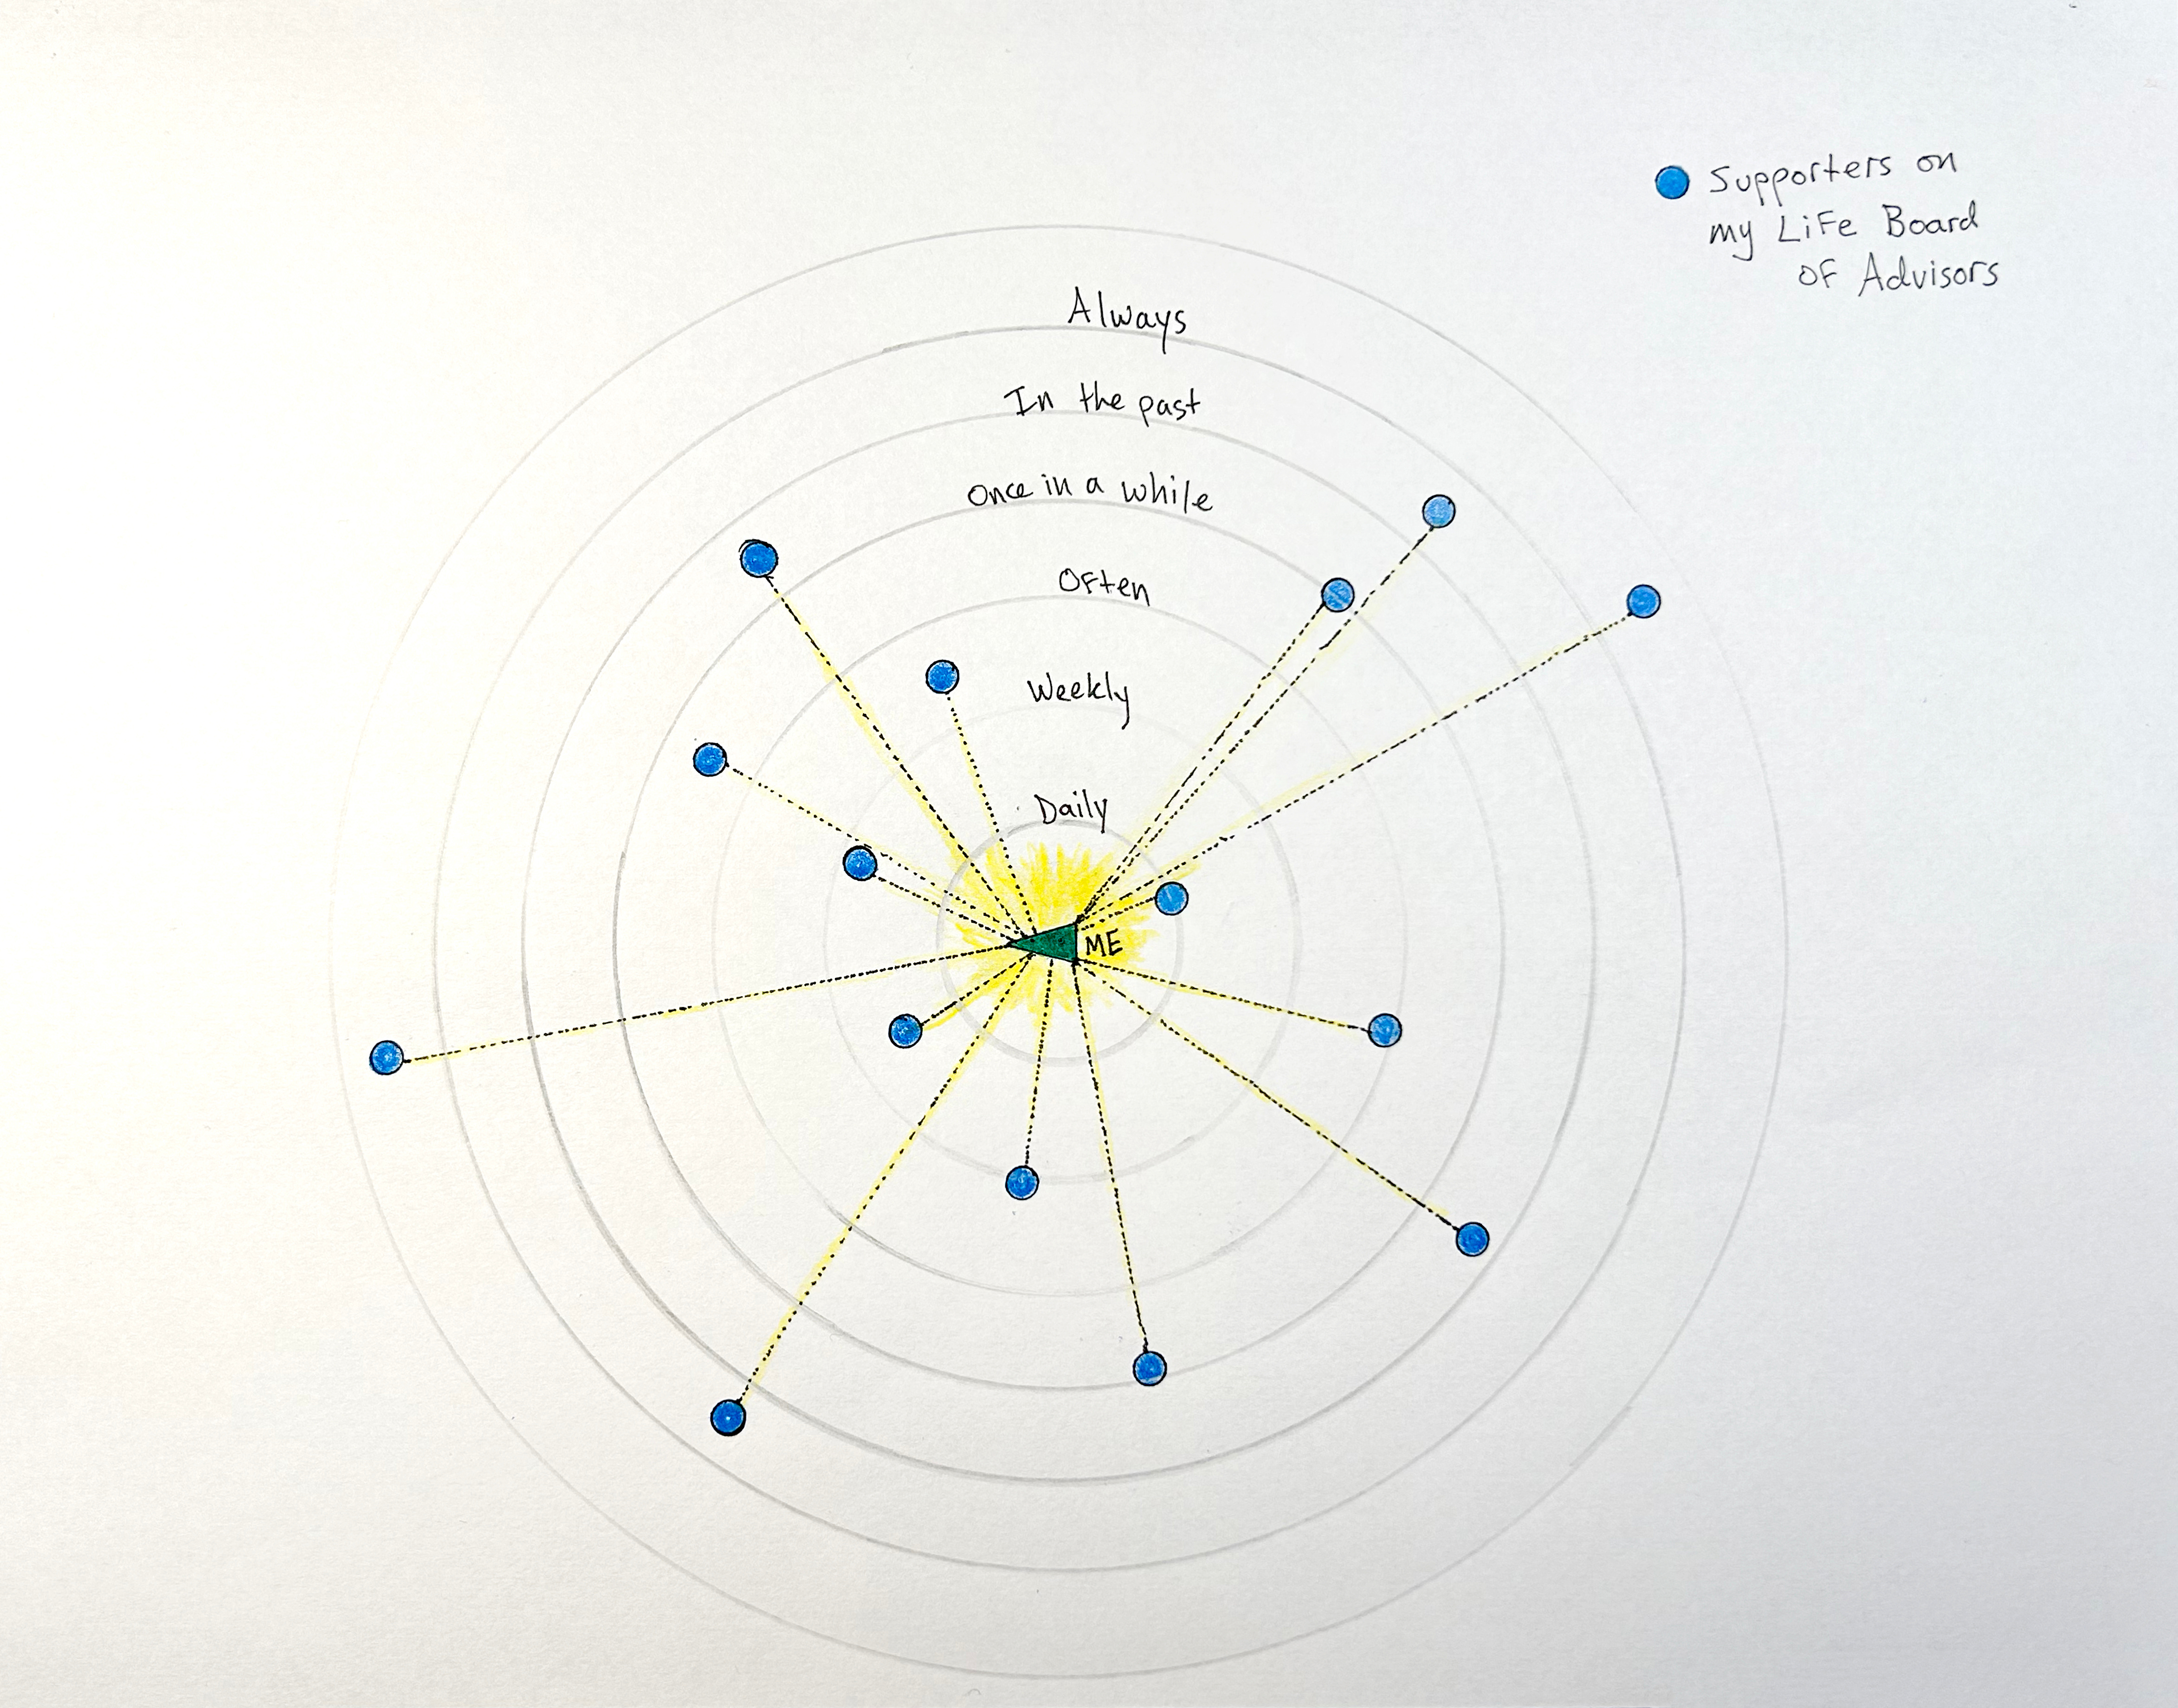 Supporters on
my Life Board
of Advisors
Always
In the past
Once in a while
Often
Weekly
Daily
ME